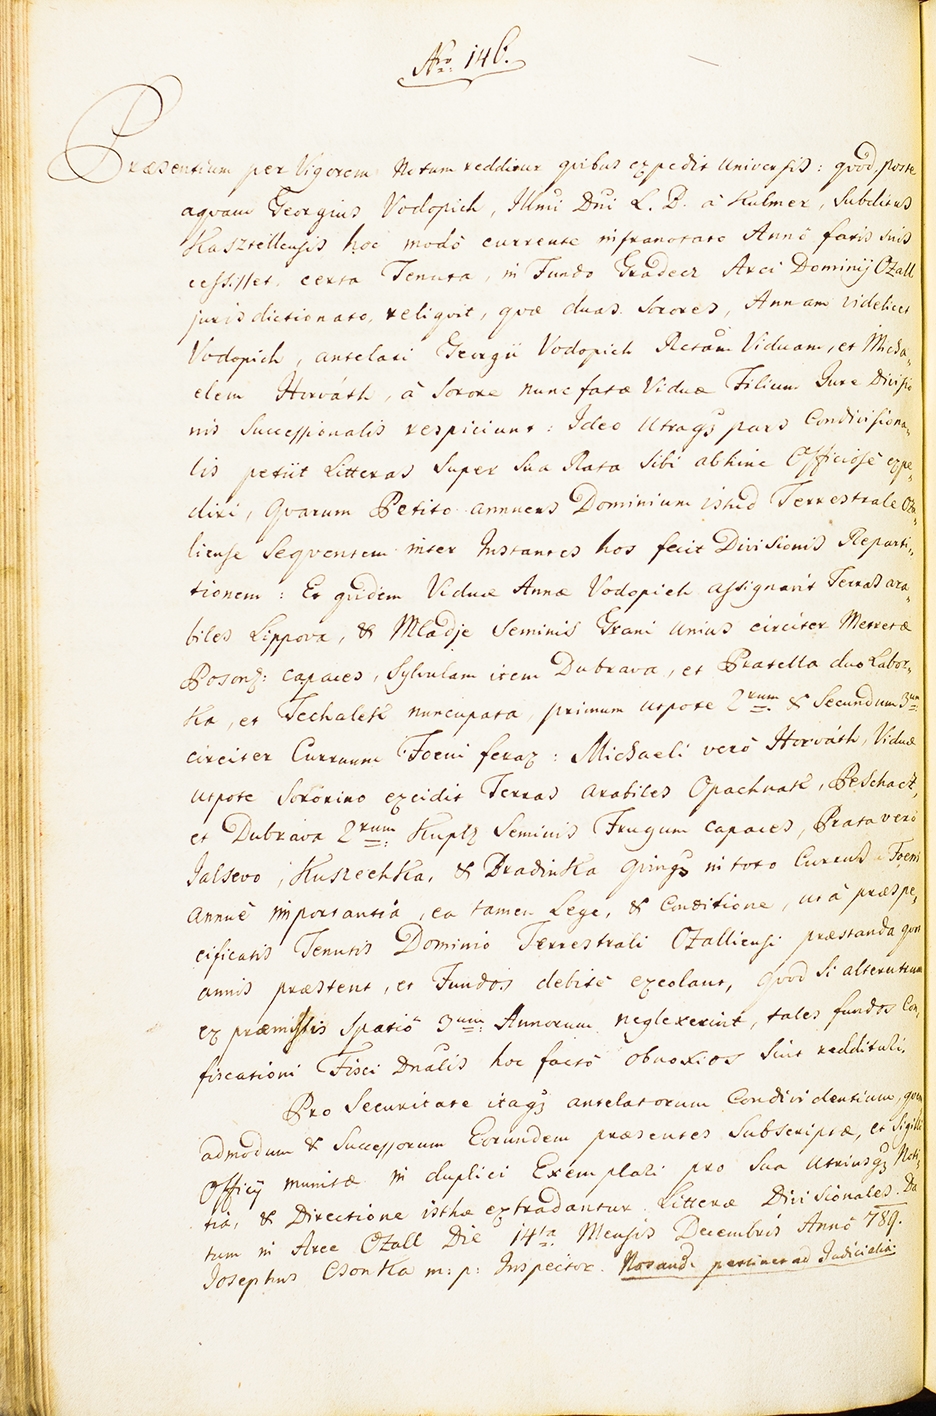 Nro: 146.
Præsentium per Vigorem Notum redditur quibus expedit universis: quod, poste
aqvam Georgius Vodopich, Illmi Dni L. B. à Kulmer, Subditus
Kasztellensis hoc modô currente infranotato Annô fatis suis
cessisset, certa Tenuta, in Fundo Gradecz Arci Dominÿ Ozall
jurisdictionato, reliqvit, qvæ duas Sorores, Annam videlicet
Vodopich, antelati Georgii Vodopich Relictam Viduam, et Micha„
elem Horváth, à Sorore nunc fatæ Viduæ Filium Jure Divisio
nis Successionalis respiciunt: Ideo Utraq3 pars Condivisiona„
lis petiit Litteras Super Sua Rata Sibi abhinc Officiosè expe„
diri, Qvarum Petito annuens Dominium istud Terrestrale Oza„
liense Seqventem inter Instantes hos fecit Divisionis Reparti„
tionem: Et qvidem Viduæ Annæ Vodopich assignavit Terras ara„
biles Lippova, & Mladje Seminis Grani unius circiter Metretæ
Poson: capaces, Sylvulam item Dubrava, et Pratella duo Labor„
ka, et Techalek nuncupata, primum utpote 2rum. & Secundum 3um
circiter Curruum Foeni ferax: Michaeli verò Horváth, Viduæ
utpote Sororino excidit Terras arabiles Opachnak, Peschacz,
et Dubrava 2rum. Kuplz Seminis Frugum capaces, Prata verò
Jalsevo, Kuszechka, & Bradinka qvinq3 in toto Currus Foeni
annuè importantia, ea tamen Lege, & Conditione, ut à præspe„
cificatis Tenutis Dominio Terrestrali Ozalliensi præstanda qvot
annis præstent, et Fundos debitè excolant, qvod Si alterutrum
ex præmissis Spatiô 3um. Annorum neglexerint, tales fundos Con„
fiscationi Fisci Dnalis hoc factô obnoxios Sint reddituri.
Pro Securitate itaq3 antelatorum Condividentium, qvem
admodum & Successorum Eorundem præsentes Subscriptæ, et Sigillo
Officÿ munitæ in duplici Exemplari pro Sua Utriusq3 Noti„
tia, & Directione isthæc extradantur Litteræ Divisionales. Da
tum in Arce Ozall Die 14ta Mensis Decembris Annô 789.
Josephus Csonka m: p: Inspector. Notandum pertinet ad Judicialia.